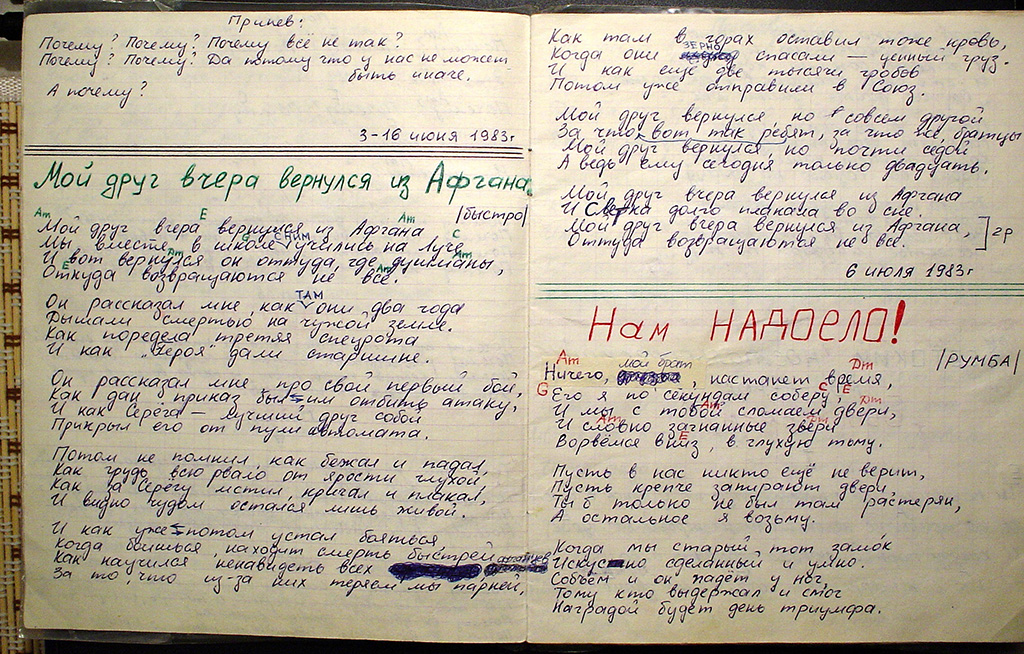 Припев:
Почему? Почему? Почему всё не так?
Почему? Почему? Да потому что у нас не может
быть иначе.
А почему?
3-16 июня 1983г
Мой друг вчера вернулся из Афгана.
/быстро/
Am E Am
Мой друг вчера вернулся из Афгана
G СНИМ C
Мы вместе в школе учились на Луче,
Am Am
И вот вернулся он оттуда, где душманы,
E Am
Откуда возвращаются не все.
ТАМ
Он рассказал мне, как они два года
Дышали смертью на чужой земле.
Как поредела третяя спецрота
И как "героя" дали старшине.
Он рассказал мне про свой первый бой,
Как дан приказ был им отбить атаку,
И как Серёга – лучший друг собой
Прикрыл его от пули автомата.
Потом не помнил, как бежал и падал,
Как грудь всю рвало от ярости глухой,
Как за Серёгу мстил, кричал и плакал,
И видно чудом остался лишь живой.
И как уже потом устал бояться
Когда боишься, находит смерть быстрей
Как научился ненавидеть всех
За то, что из-за них теряем мы парней,
Как там в горах оставил тоже кровь,
ЗЕРНО
Когда они спасали – ценный груз.
И как ещё две тысячи гробов
Потом уже отправили в Союз.
Мой друг вернулся, но совсем другой
За что вот так ребят, за что же братцы
Мой друг вернулся но почти седой
А ведь ему сегодня только двадцать.
Мой друг вчера вернулся из Афгана
И долго плакала во сне.
Мой друг вчера вернулся из Афгана,
Откуда возвращаются не все. ] 2р
6 июля 1983г
Нам НАДОЕЛО!
/РУМБА/
Am мой брат Dm
Ничего, , настанет время,
G C E
Его я по секундам соберу,
Am Dm
И мы с тобой сломаем двери,
Am Dm
И словно загнанные звери
E
Ворвёмся вниз, в глухую тьму.
Пусть в нас никто ещё не верит,
Пусть крепче запирают двери
Ты б только не был там растерян,
А остальное я возьму.
Когда мы старый тот замок
Искусно сделанный и умно.
Собьём и он падет у ног,
Тому кто выдержал и смог
Наградой будет день триумфа.